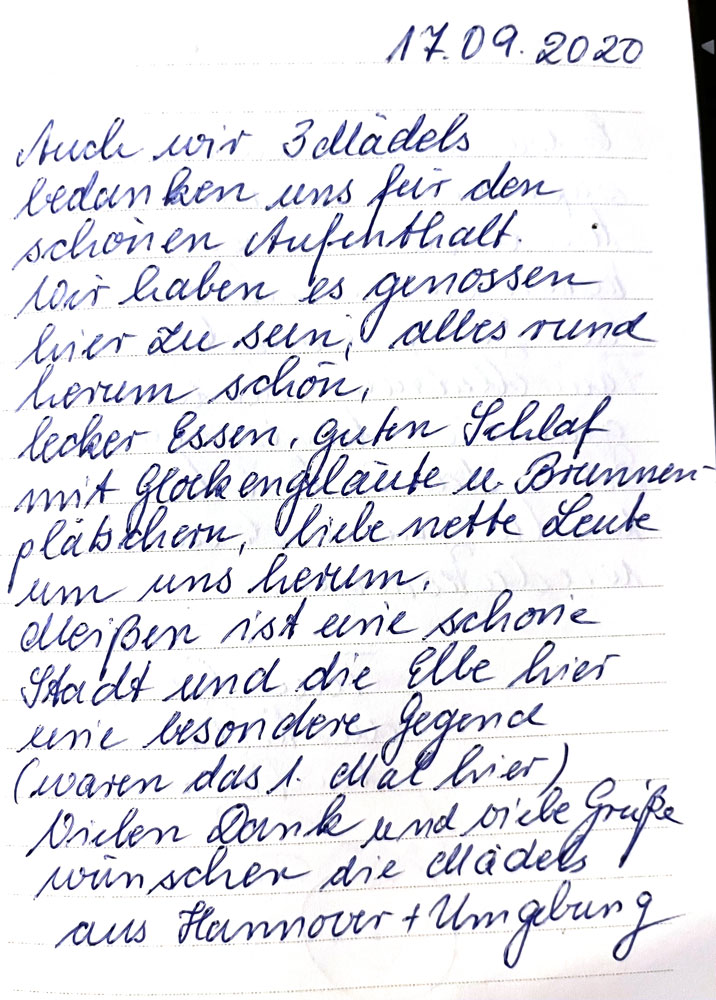 17.09.2020
Auch wir 3 Mädels
bedanken uns für den
schönen Aufenthalt.
Wir haben es genossen
hier zu sein, alles rund
herum schön,
lecker Essen, guten Schlaf
mit Glockengeläute u. Brunnen-
plätschern, liebe nette Leute
um uns herum.
Meißen ist eine schöne
Stadt und die Elbe hier
eine besondere Gegend
(waren das 1. Mal hier)
Vielen Dank und viele Grüße
wünschen die Mädels
aus Hannover + Umgebung